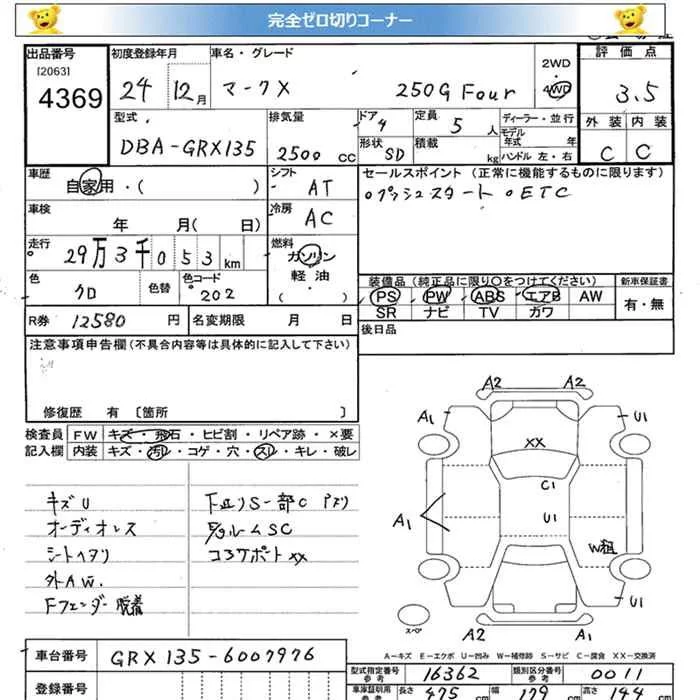 完全ゼロ切りコーナー
出品番号 初度登録年月 車名・グレード 2WD 評価点
[2063]
4369 24 12月 マークX 250G Four 4WD 3.5
型式 排気量 ドア 定員 ディーラー・並行 外装 内装
DBA-GRX135 2500 CC 4 5 人 モデル年式 年 C C
形状 積載
SD kg ハンドル 左・右
車歴 シフト セールスポイント(正常に機能するものに限ります)
自家用・( ) AT ○プッシュスタート ○ETC
車検 冷房
年 月( 日) AC
走行 燃料
29万3千053km ガソリン
軽・油
( )
色 色替 色コード 装備品(純正品に限り○をつけてください) 新車保証書
クロ 202 PS PW ABS エアB AW 有・無
SR ナビ TV カワ
R券 12580 円 名変期限 月 日 後日品
注意事項申告欄(不具合内容等は具体的に記入して下さい)
修復歴 有〔箇所 〕
検査員 FW キズ・飛石・ヒビ割・リペア跡・×要
記入欄 内装 キズ・汚レ・コゲ・穴・スレ・キレ・破レ
キズU
オーディオレス
シートヘタリ
外AW.
Fフェンダー脱着
コアサポートXX
A2 A2
A1 U1
XX
C1
A1 U1
W
U1
スペア
A2 A1
A－キズ E－エクボ U－凹み W－補修跡 S－サビ C－腐食 XX－交換済
車台番号 GRX135-6007976
型式指定番号 参考 16362 類別区分番号 参考 0011
登録番号 車庫証明用 参考 長さ 475 cm 幅 179 cm 高さ 144 cm